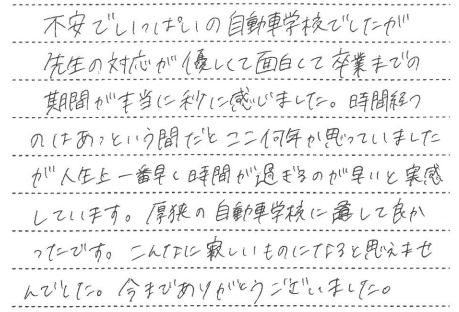 不安でいっぱいの自動車学校でしたが
先生の対応が優しくて面白くて卒業までの
期間が本当に秒に感じました。時間経つ
のはあっという間だとここ何年か思っていました
が人生上一番早く時間が過ぎるのが早いと実感
しています。厚狭の自動車学校に通して良か
ったです。こんなに寂しいものになると思えませ
んでした。今までありがとうございました。